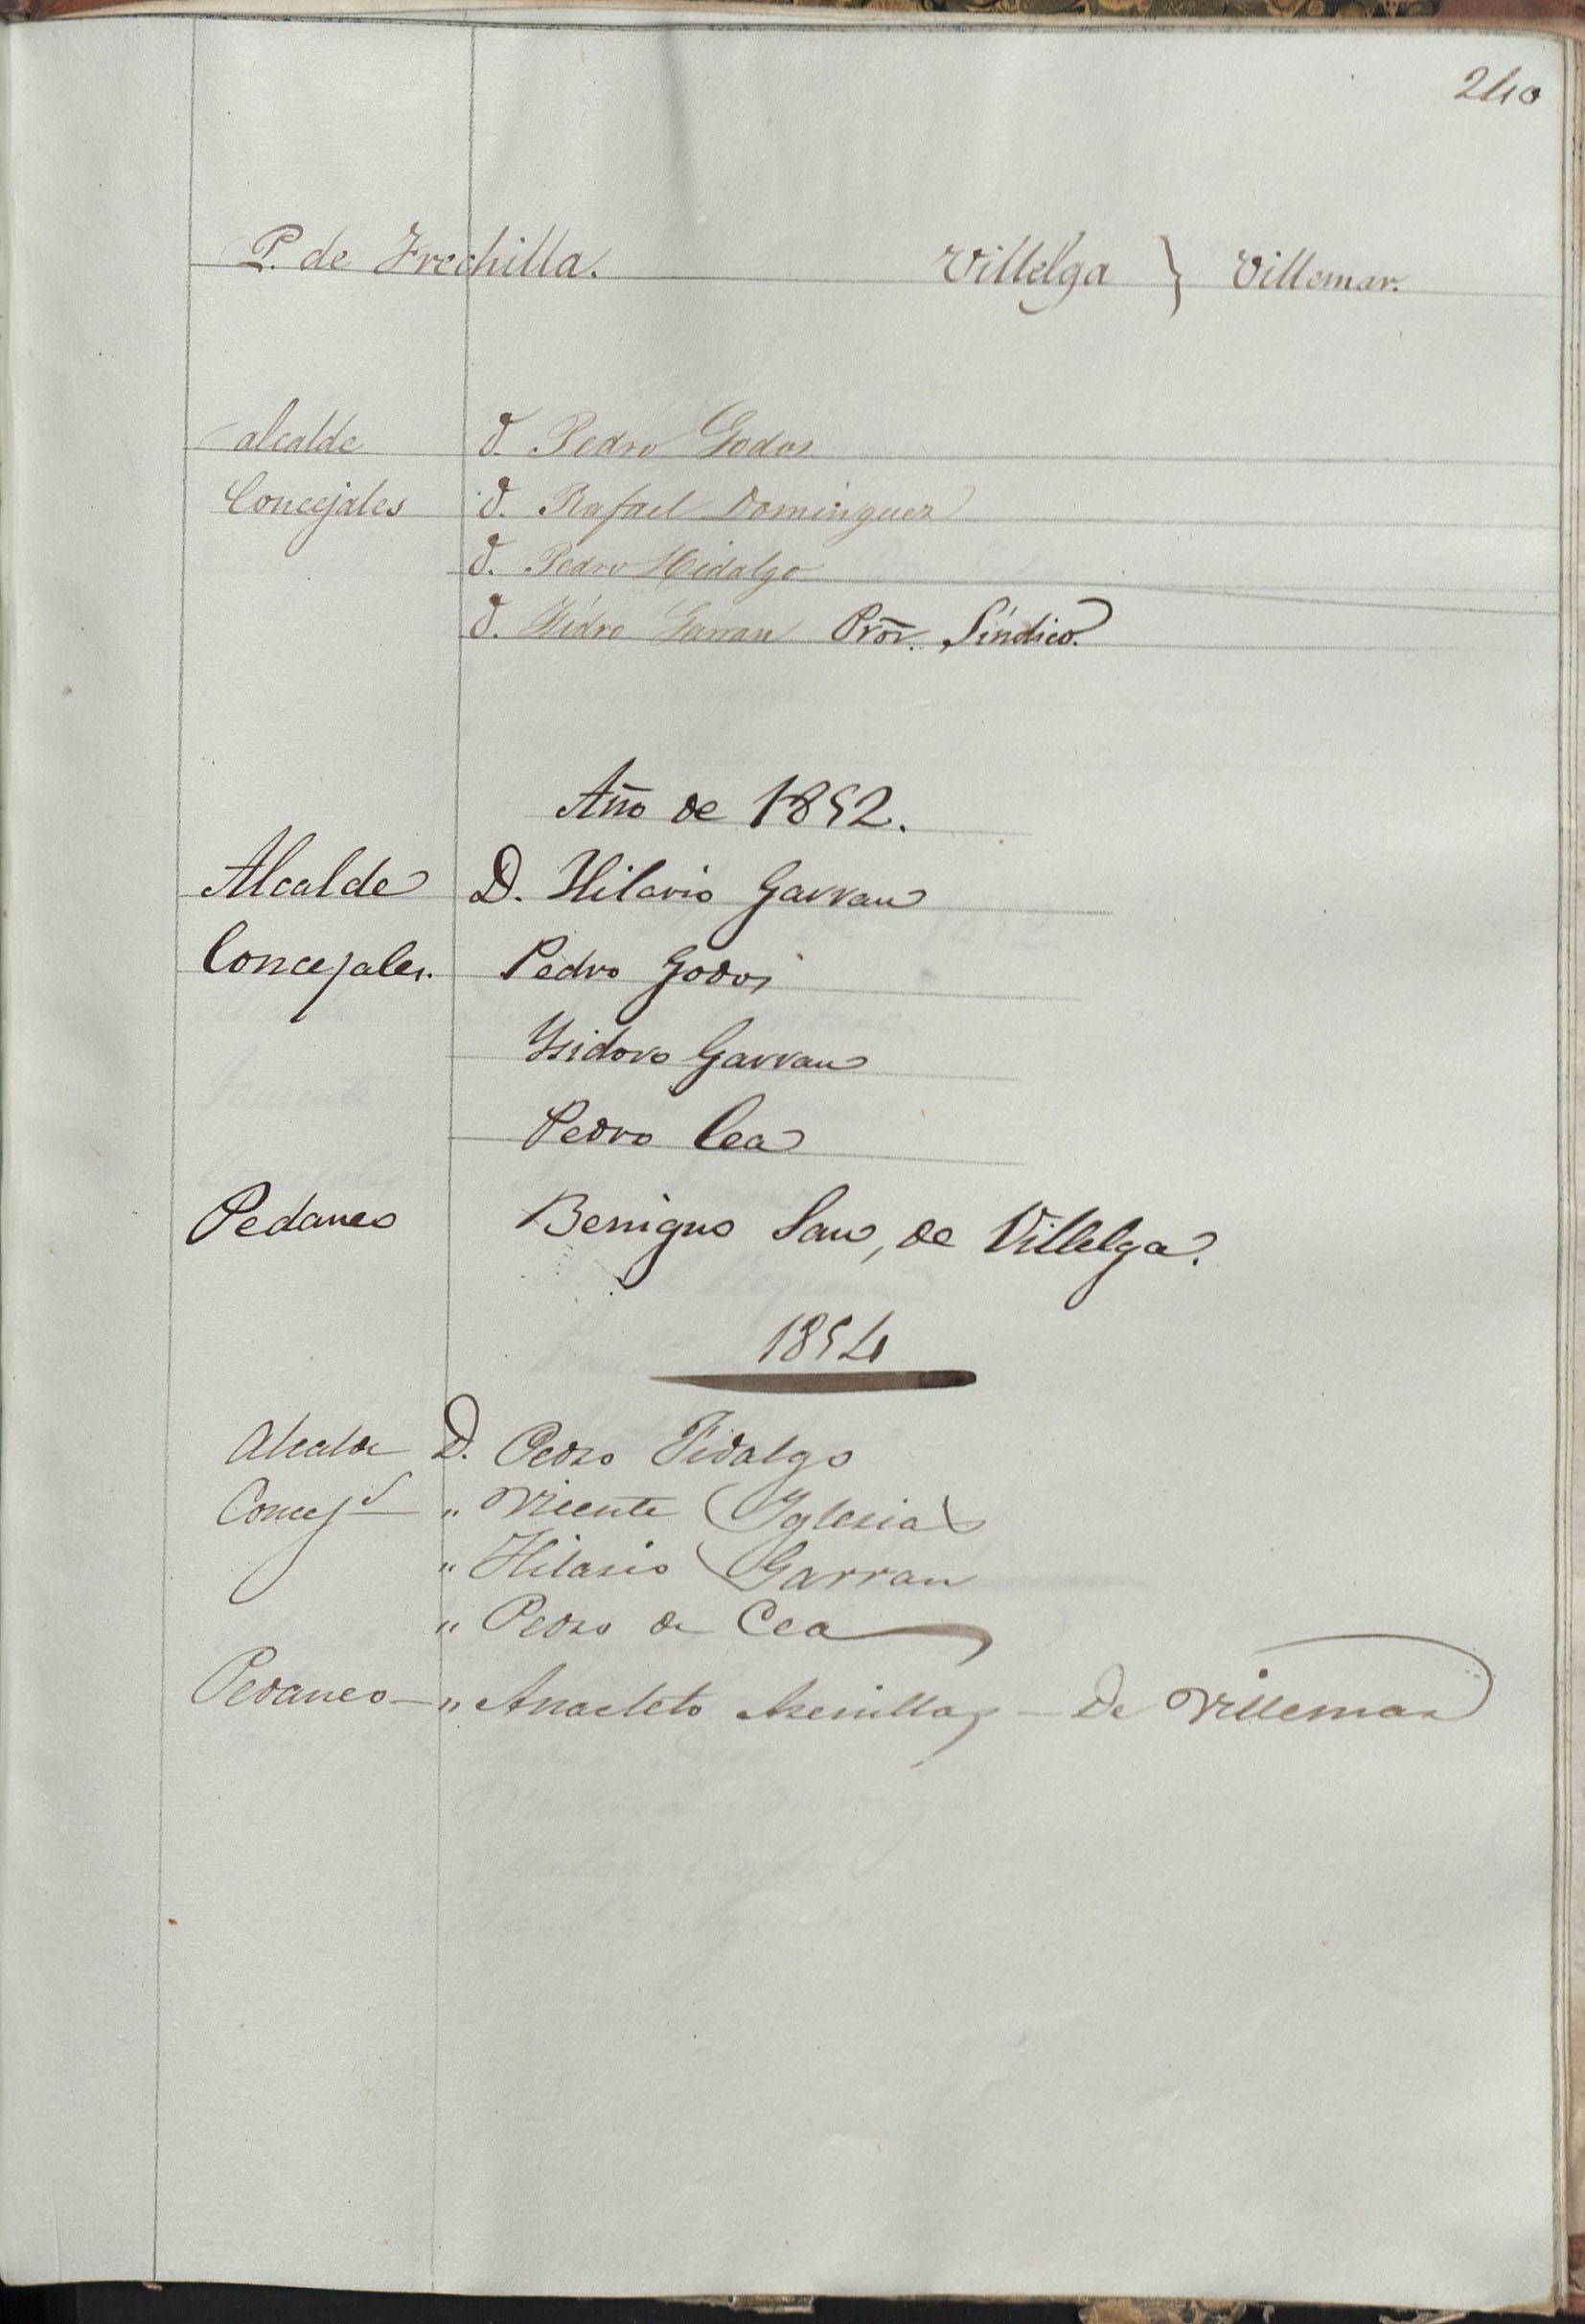 240
P. de Frechilla. Villelga } Villemar.
alcalde D. Pedro Godos
Concejales D. Rafael Dominguez
D. Pedro Hidalgo
D. Ysidro Garran Pror. Síndico.
Año de 1852.
Alcalde D. Hilario Garran
Concejales. Pedro Godos
Ysidoro Garran
Pedro Cea
Pedaneo Benigno San, de Villelga.
1854
Alcalde D. Pedro Fidalgo
Concejs „ Vicente Yglesias
„ Hilario Garran
„ Pedro de Cea
Pedaneo — „ Anacleto Asenillas — De Villemar